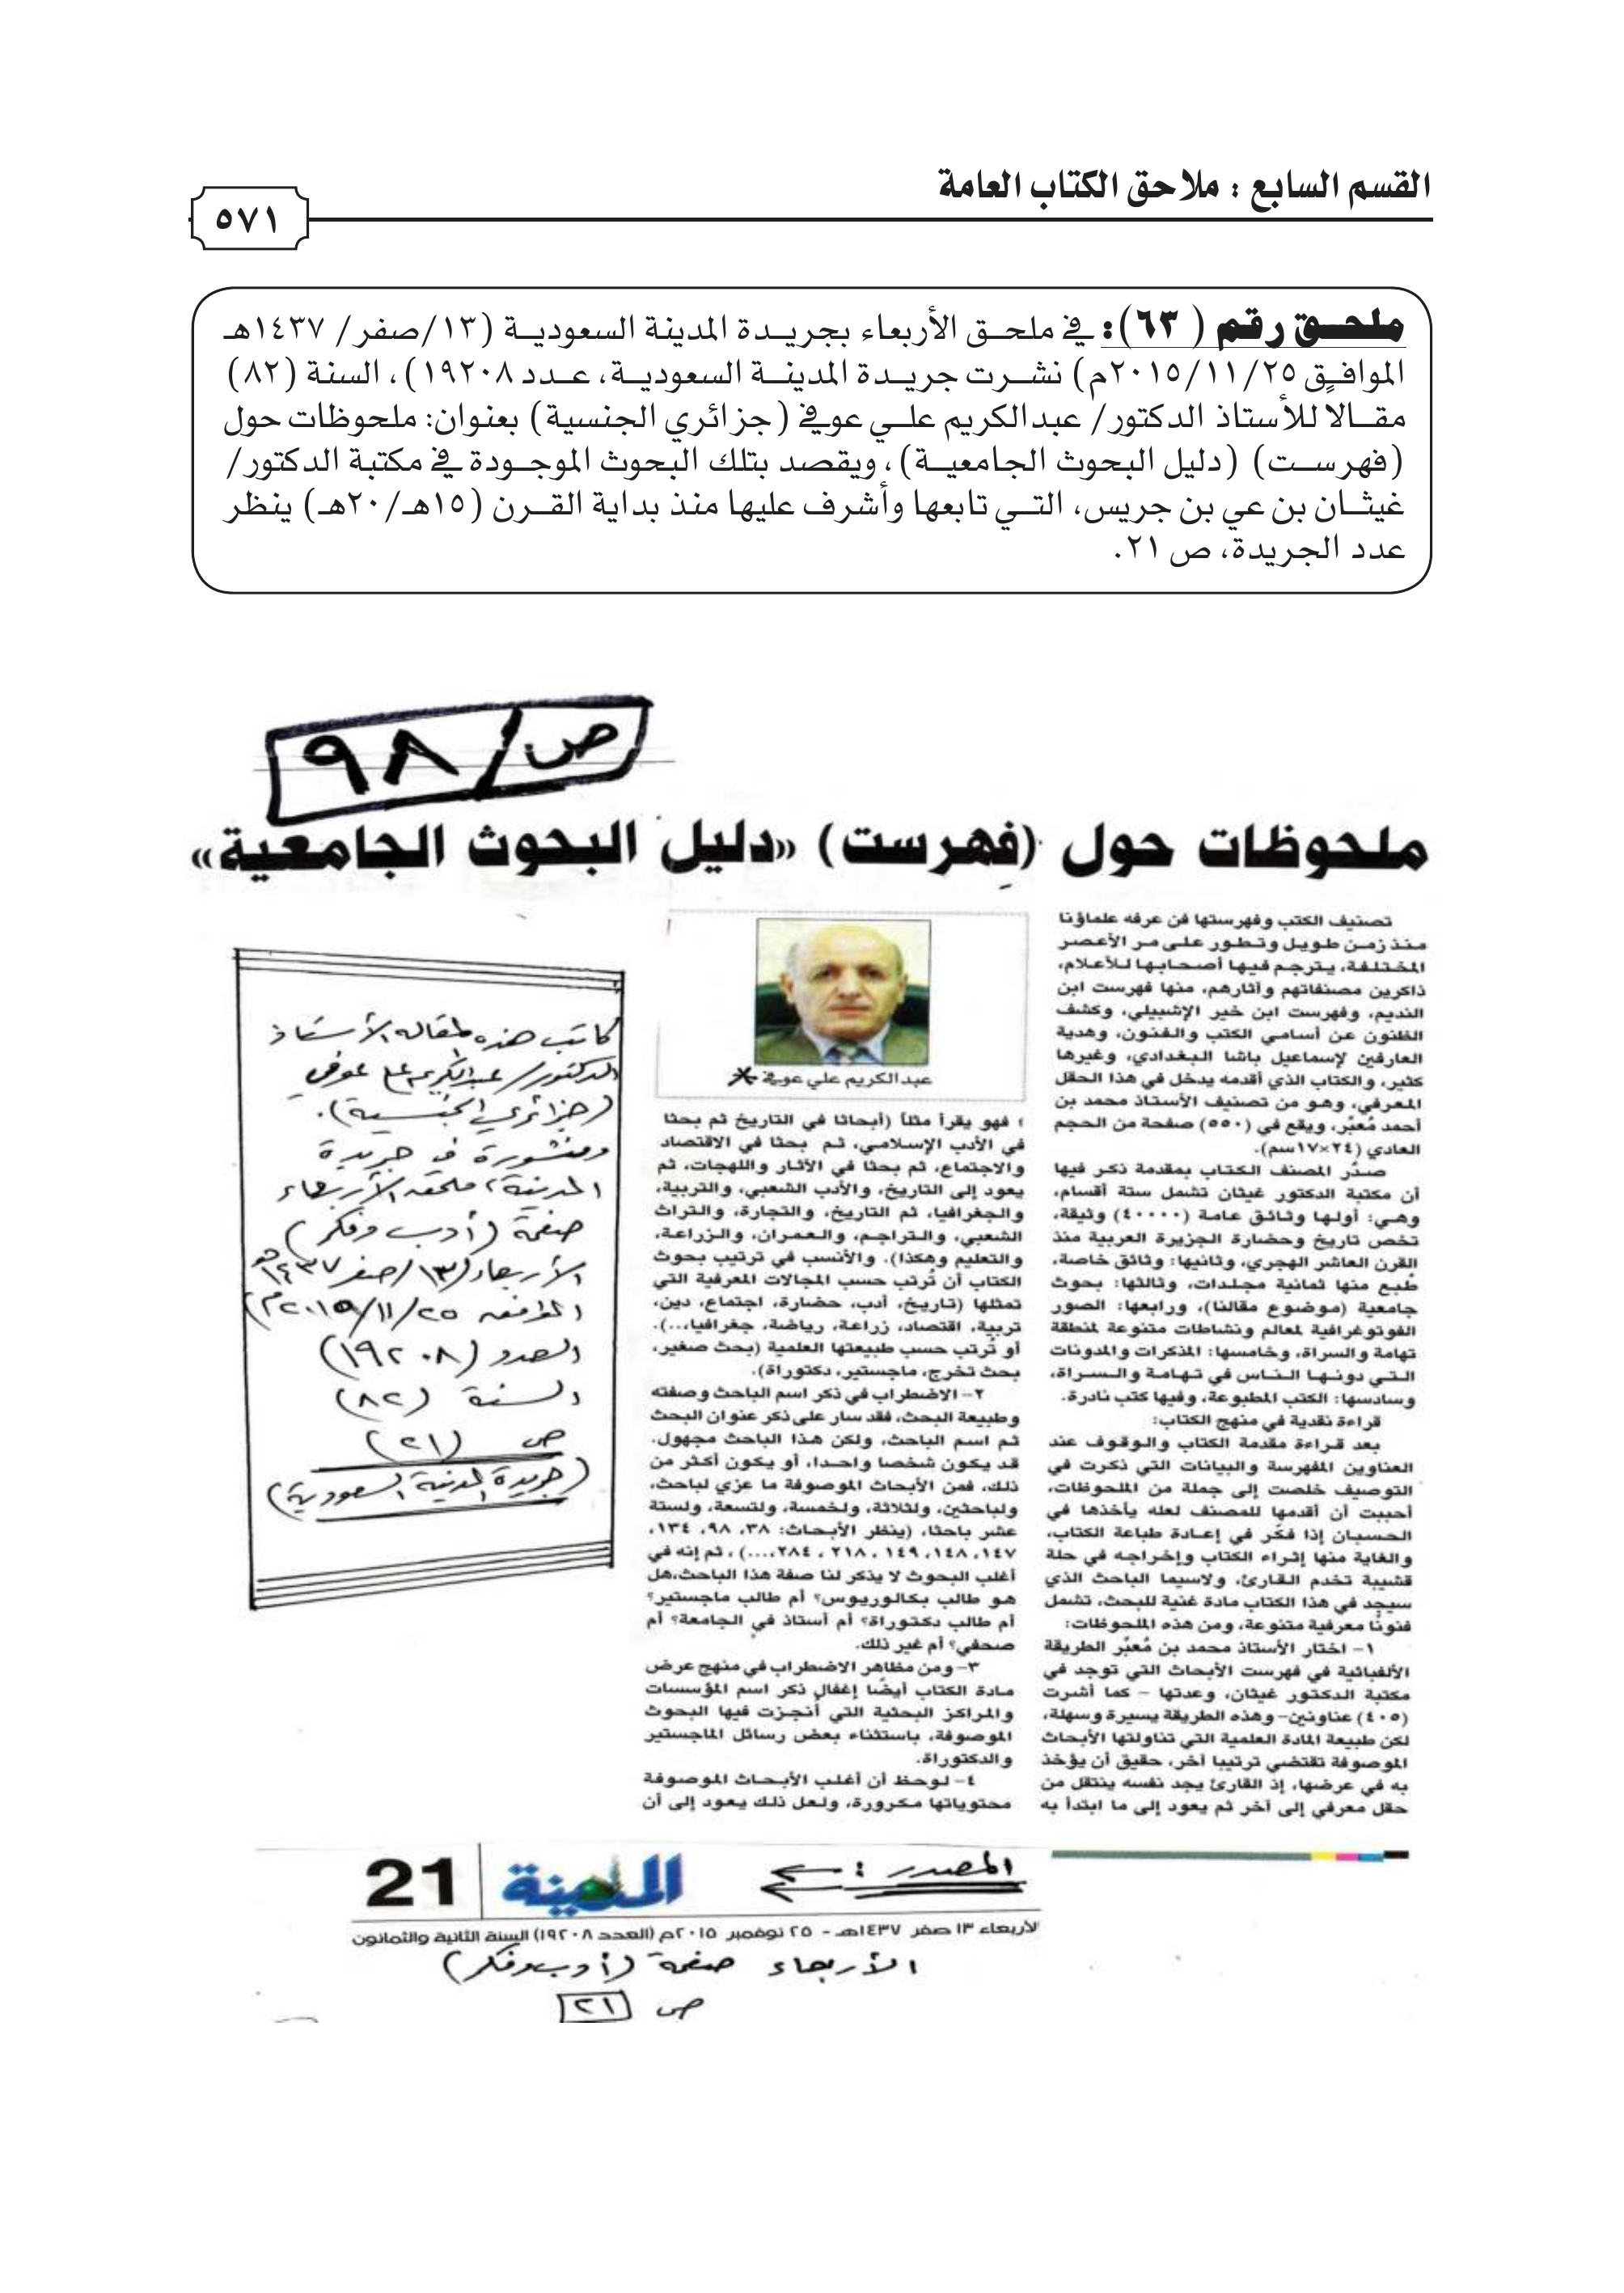 القسم السابع : ملاحق الكتاب العامة
٥٧١
ملحـــق رقم ( ٦٣): في ملحق الأربعاء بجريدة المدينة السعودية (١٣/صفر/ ١٤٣٧هـ
الموافق ٢٠١٥/١١/٢٥م) نشرت جريدة المدينة السعودية، عدد ١٩٢٠٨)، السنة (٨٢)
مقالا للأستاذ الدكتور/ عبدالكريم علي عوفي (جزائري الجنسية) بعنوان: ملحوظات حول
(فهرست) (دليل البحوث الجامعية)، ويقصد بتلك البحوث الموجودة في مكتبة الدكتور/
غيثان بن عي بن جريس، التي تابعها وأشرف عليها منذ بداية القرن (١٥هـ/٢٠هـ) ينظر
عدد الجريدة، ص ٢١.
ص/٩٨
ملحوظات حول (فِهرست) «دليل البحوث الجامعية»
تصنيف الكتب وفهرستها فن عرفه علماؤنا
منذ زمن طويل وتطور على مر الأعصر
المختلفة، يترجم فيها أصحابها للأعلام،
ذاكرين مصنفاتهم وآثارهم، منها فهرست ابن
النديم، وفهرست ابن خير الإشبيلي، وكشف
الظنون عن أسامي الكتب والفنون، وهدية
العارفين لإسماعيل باشا البغدادي، وغيرها
كثير، والكتاب الذي أقدمه يدخل في هذا الحقل
المعرفي، وهو من تصنيف الأستاذ محمد بن
أحمد مُعبّر، ويقع في (٥٥٠) صفحة من الحجم
العادي (٢٤×١٧سم).
صدّر المصنف الكتاب بمقدمة ذكر فيها
أن مكتبة الدكتور غيثان تشمل ستة أقسام،
وهي: أولها وثائق عامة (٤٠٠٠٠) وثيقة،
تخص تاريخ وحضارة الجزيرة العربية منذ
القرن العاشر الهجري، وثانيها: وثائق خاصة،
طُبع منها ثمانية مجلدات، وثالثها: بحوث
جامعية (موضوع مقالنا)، ورابعها: الصور
الفوتوغرافية لمعالم ونشاطات متنوعة لمنطقة
تهامة والسراة، وخامسها: المذكرات والمدونات
التي دونها الناس في تهامة والسراة،
وسادسها: الكتب المطبوعة، وفيها كتب نادرة.
قراءة نقدية في منهج الكتاب:
بعد قراءة مقدمة الكتاب والوقوف عند
العناوين المفهرسة والبيانات التي ذكرت في
التوصيف خلصت إلى جملة من الملحوظات،
أحببت أن أقدمها للمصنف لعله يأخذها في
الحسبان إذا فكّر في إعادة طباعة الكتاب،
والغاية منها إثراء الكتاب وإخراجه في حلة
قشيبة تخدم القارئ، ولاسيما الباحث الذي
سيجد في هذا الكتاب مادة غنية للبحث، تشمل
فنونًا معرفية متنوعة، ومن هذه الملحوظات:
١- اختار الأستاذ محمد بن مُعبّر الطريقة
الألفبائية في فهرست الأبحاث التي توجد في
مكتبة الدكتور غيثان، وعدتها – كما أشرت
(٤٠٥) عناوين- وهذه الطريقة يسيرة وسهلة،
لكن طبيعة المادة العلمية التي تناولتها الأبحاث
الموصوفة تقتضي ترتيبا آخر، حقيق أن يؤخذ
به في عرضها، إذ القارئ يجد نفسه ينتقل من
حقل معرفي إلى آخر ثم يعود إلى ما ابتدأ به
عبدالكريم علي عوفي
، فهو يقرأ مثلاً (أبحاثا في التاريخ ثم بحثا
في الأدب الإسلامي، ثم بحثا في الاقتصاد
والاجتماع، ثم بحثا في الآثار واللهجات، ثم
يعود إلى التاريخ، والأدب الشعبي، والتربية،
والجغرافيا، ثم التاريخ، والتجارة، والتراث
الشعبي، والتراجم، والعمران، والزراعة،
والتعليم وهكذا). والأنسب في ترتيب بحوث
الكتاب أن تُرتب حسب المجالات المعرفية التي
تمثلها (تاريخ، أدب، حضارة، اجتماع، دين،
تربية، اقتصاد، زراعة، رياضة، جغرافيا،...).
أو تُرتب حسب طبيعتها العلمية (بحث صغير،
بحث تخرج، ماجستير، دكتوراة).
٢- الاضطراب في ذكر اسم الباحث وصفته
وطبيعة البحث، فقد سار على ذكر عنوان البحث
ثم اسم الباحث، ولكن هذا الباحث مجهول.
قد يكون شخصا واحدا، أو يكون أكثر من
ذلك، فمن الأبحاث الموصوفة ما عزي لباحث،
ولباحثين، ولثلاثة، ولخمسة، ولتسعة، ولستة
عشر باحثا، (ينظر الأبحاث: ٣٨، ٩٨، ١٣٤،
١٤٧، ١٤٨، ١٤٩، ٢١٨، ٢٨٤،...)، ثم إنه في
أغلب البحوث لا يذكر لنا صفة هذا الباحث،هل
هو طالب بكالوريوس؟ أم طالب ماجستير؟
أم طالب دكتوراة؟ أم أستاذ في الجامعة؟ أم
صحفي؟ أم غير ذلك.
٣- ومن مظاهر الاضطراب في منهج عرض
مادة الكتاب أيضًا إغفال ذكر اسم المؤسسات
والمراكز البحثية التي أُنجزت فيها البحوث
الموصوفة، باستثناء بعض رسائل الماجستير
والدكتوراة.
٤- لوحظ أن أغلب الأبحاث الموصوفة
محتوياتها مكرورة، ولعل ذلك يعود إلى أن
كاتب هذه المقالة الأستاذ
الدكتور/ عبدالكريم علي عوفي
(جزائري الجنسية).
ومنشورة في جريدة
المدينة، ملحق الأربعاء
صفحة (أدب وفكر)
الأربعاء (١٣/صفر/١٤٣٧هـ
الموافق ٢٠١٥/١١/٢٥م)
العدد (١٩٢٠٨)
السنة (٨٢)
ص (٢١)
(جريدة المدينة السعودية)
المصدر :
المدينة
21
الأربعاء ١٣ صفر ١٤٣٧هـ - ٢٥ نوفمبر ٢٠١٥م (العدد ١٩٢٠٨) السنة الثانية والثمانون
الأربعاء صفحة (أدب وفكر)
ص ٢١